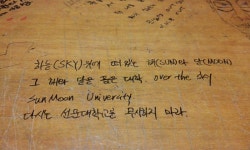 하늘(SKY)위에 떠있는 해(SUN)와 달(MOON)
그 해와 달을 품은 대학 over the sky
Sun Moon University
다시는 선문대학교를 무시하지 마라.